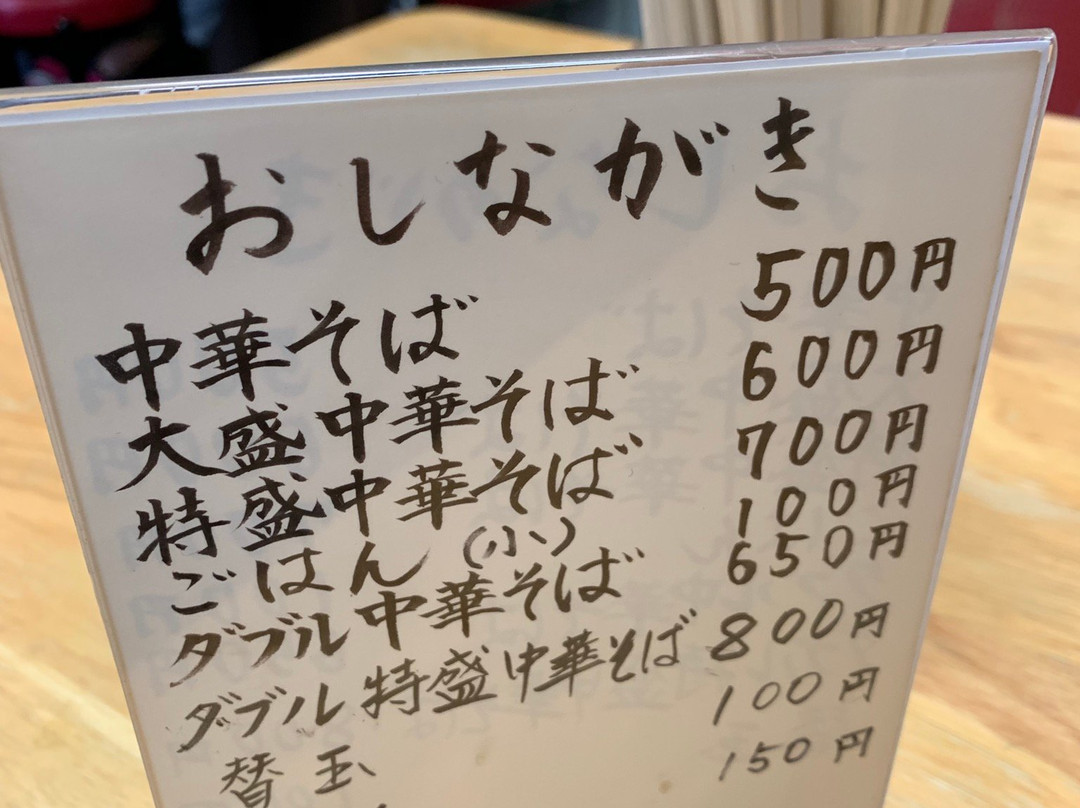 おしながき
中華そば 500円
大盛中華そば 600円
特盛中華そば 700円
ごはん(小) 100円
ダブル中華そば 650円
ダブル特盛中華そば 800円
替玉 100円
150円